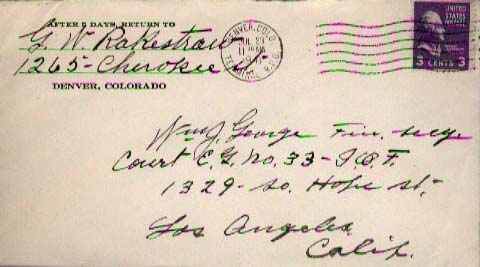 AFTER 5 DAYS, RETURN TO
G. W. Rakestraw
1265 - Cherokee St.
DENVER, COLORADO
DENVER, COLO.
JUL 23
11 AM
TERMINAL R.P.O.
UNITED STATES
3 CENTS 3
Wm J. George Fin. secy.
Court E.G. No. 33 - I.O.F.
1329 - So. Hope st.
Los Angeles
Calif.